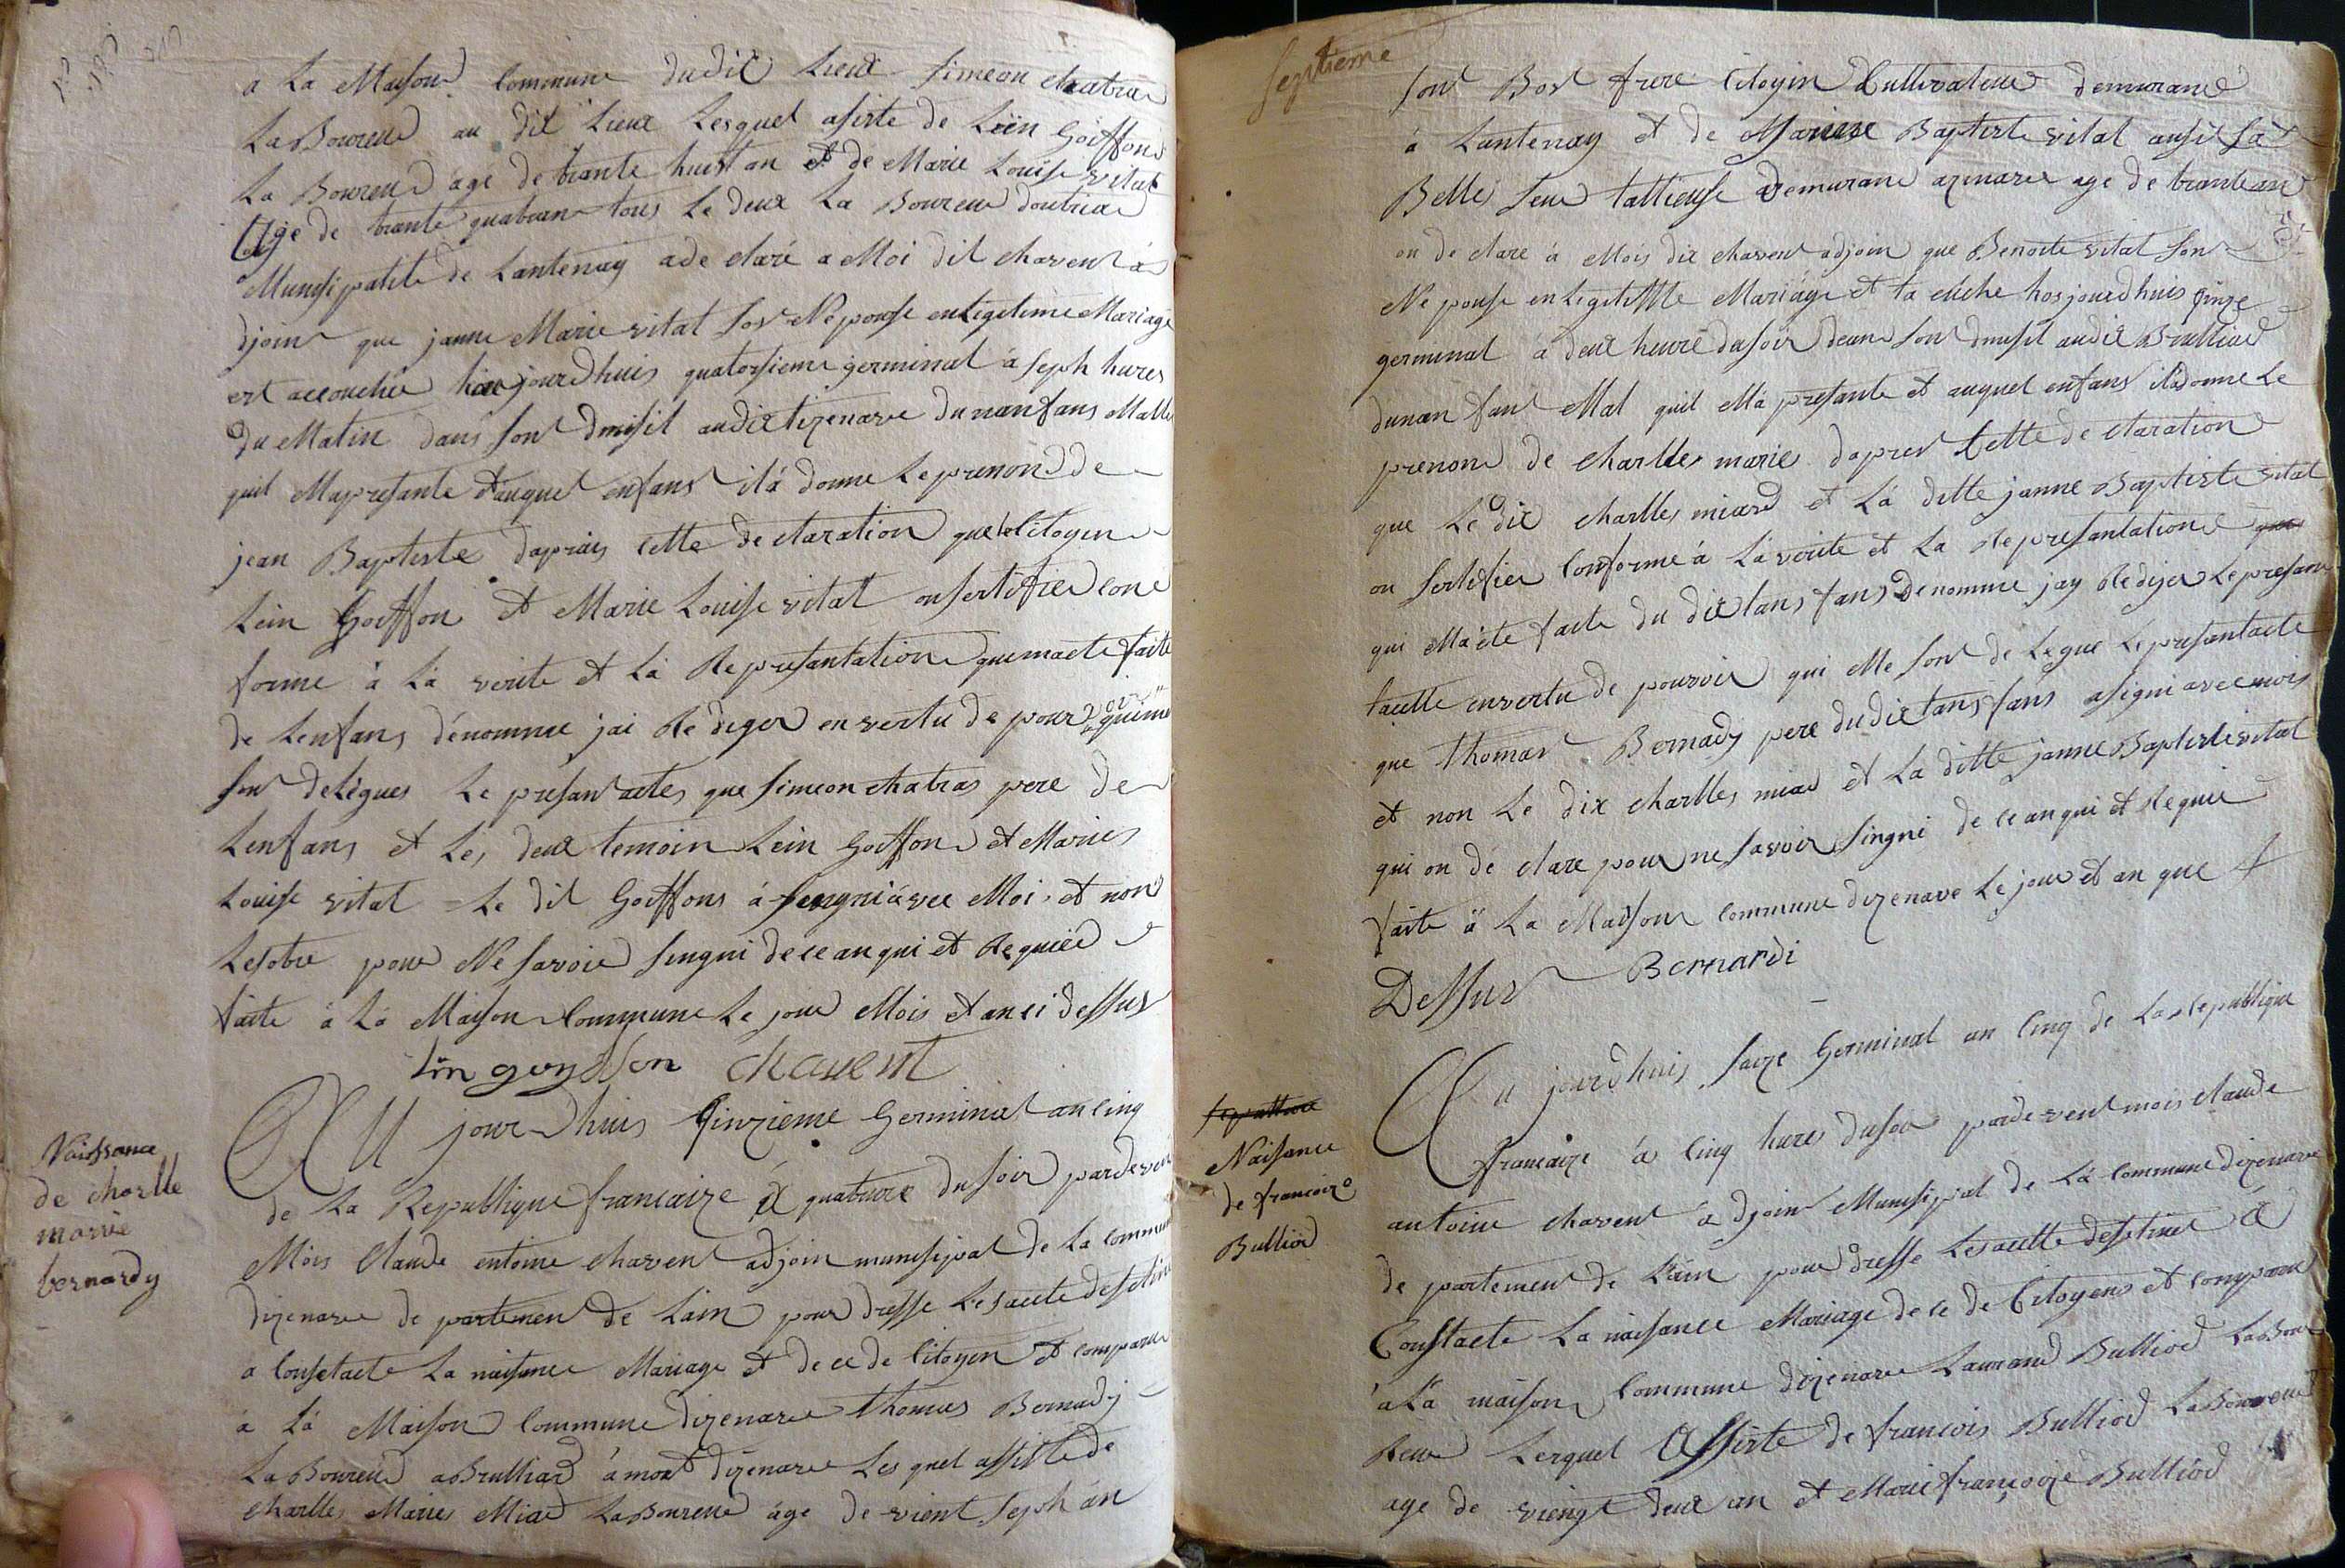 a La Maison Commune dudit Lieux Simeon chatra
La Boureur au dit Lieux Lesquel asiste de Lein Goiffon
La Boureur age de trante huit an et de Marie Louise vitat
age de trante quatran tous Le deux La Boureur
Munsipatite de Lantenay a de claré a Moi dit chavent a
djoin que janne Marie vitat son Ne pouse en Legitime Mariage
est accouchee jourdhuis quatorsieme germinal á seph hures
du Matin dans son dmisil audit izenave dunanfans Malle
quil Mapresante et auquel enfans il á donne Le prenon de
jean Baptiste daprais Cette de claration que le Citoyen
Lein Goiffon et Marie Louise vitat on sertifier con
forme á La verite et La Represantation que ma ete faite
de Lenfans dénomme jai Re diger en vertu de pour voir qui me
son delegues Le presan actes que Simeon chatras pere de
Lenfans et Les deux temoin Lein Goiffon et Marie
Louise vitat Le dit Goiffons á singni ávec Moi et non
Lesotre pour Ne savoir singni de ce an qui et Requier
faite á La Maison Commune Le jour Mois et an ci dessus
Lin goyffon chavent
Naissance
de charlle
marie
bernardy
AU jourdhuis Qinzieme Germinal an cinq
de La Republique francaize á quatrre du soir pardevent
Mois Claude entoine chavent adjoin munsipal de La commune
dizenave de partemen de Lain pour dresse Les acte destine
a Consetacte La naisance Mariage et de ce de Citoyen et comparu
á Lá Maison Commune dizenave thomas Bernady
La Boureur a Brulliad ámont dizenave Les quel assisté de
charlles Maries Miard La Boureur age de vient seph án
Septieme
son Bos frere Citoyin Cultivateur demurant
á Lantenay et de Marie Baptiste vitat ausit sa
Belle seur tallieuse demurant azenave age de trantean
on de clare á Mois dit chavent adjoin que Benoite vitat son
Ne pouse en Legitime Mariáge et ta cuche hosjourdhuis qinze
germinal á deux heure dusoir dean son dmisil audit Brulliad
dunan fant Mal quil Má presante et auquel enfans il a donne Le
prenon de charlles marie dapres Cette de claration
que Le dit charlles miard et Lá ditte janne Baptiste vitat
on sertifier Conforme á Lá verite et La Represantation
qui Má ete faite du dit Lans fans denomme jay Rediger Le presan
tacte envertu de pourvoir qui Me son de Legue Le presantacte
que thomas Bernady pere dudit Lans fans a signi avec mois
et non Le dit charlles miar et La ditte janne Baptiste vitat
qui on dé clare pour ne savoir singni de ce an qui et Requie
faite á La Maison Commune dizenave Le jour et an que
Dessus Bernardi
sepulture
Naisance
de francoise
Bulliod
Au jourdhuis saize Germinal an Cinq de La republique
francaize á Cinq hures dusoir pardevent mois claude
antoine chavent ádjoin Munsipal de Lá Commune dizenave
de partement de Lain pour dresse Les actte destinet á
Constacte La naisance Mariage de ce de Citoyens et comparu
á Lá maison Commune dizenave Laurand Bulliod La Bou
Reur Lesquel assiste de francois Bulliod La Boureur
age de viengt deux an et Marie françoize Bulliod